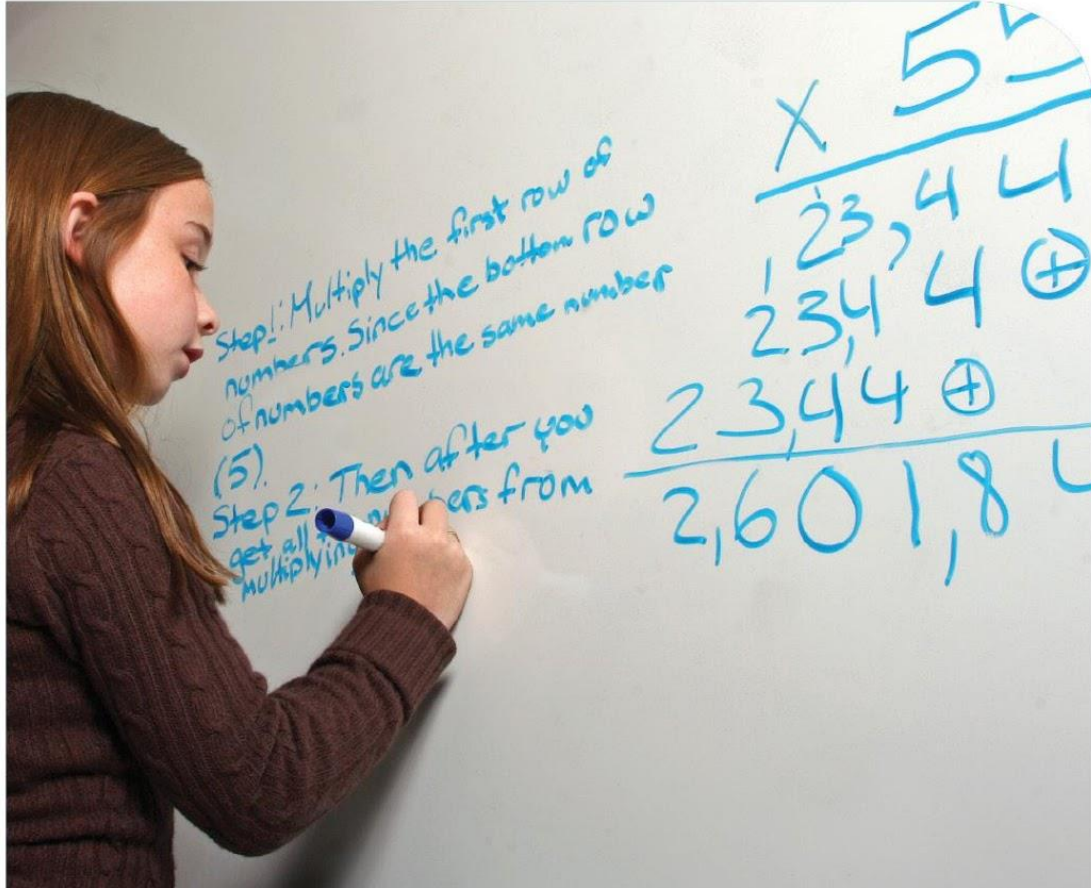 Step 1: Multiply the first row of
numbers. Since the bottom row
of numbers are the same number
(5).
Step 2: Then after you
get all from
multiplying
5
X
23,44
23,44 ⊕
23,44 ⊕
2,601,8